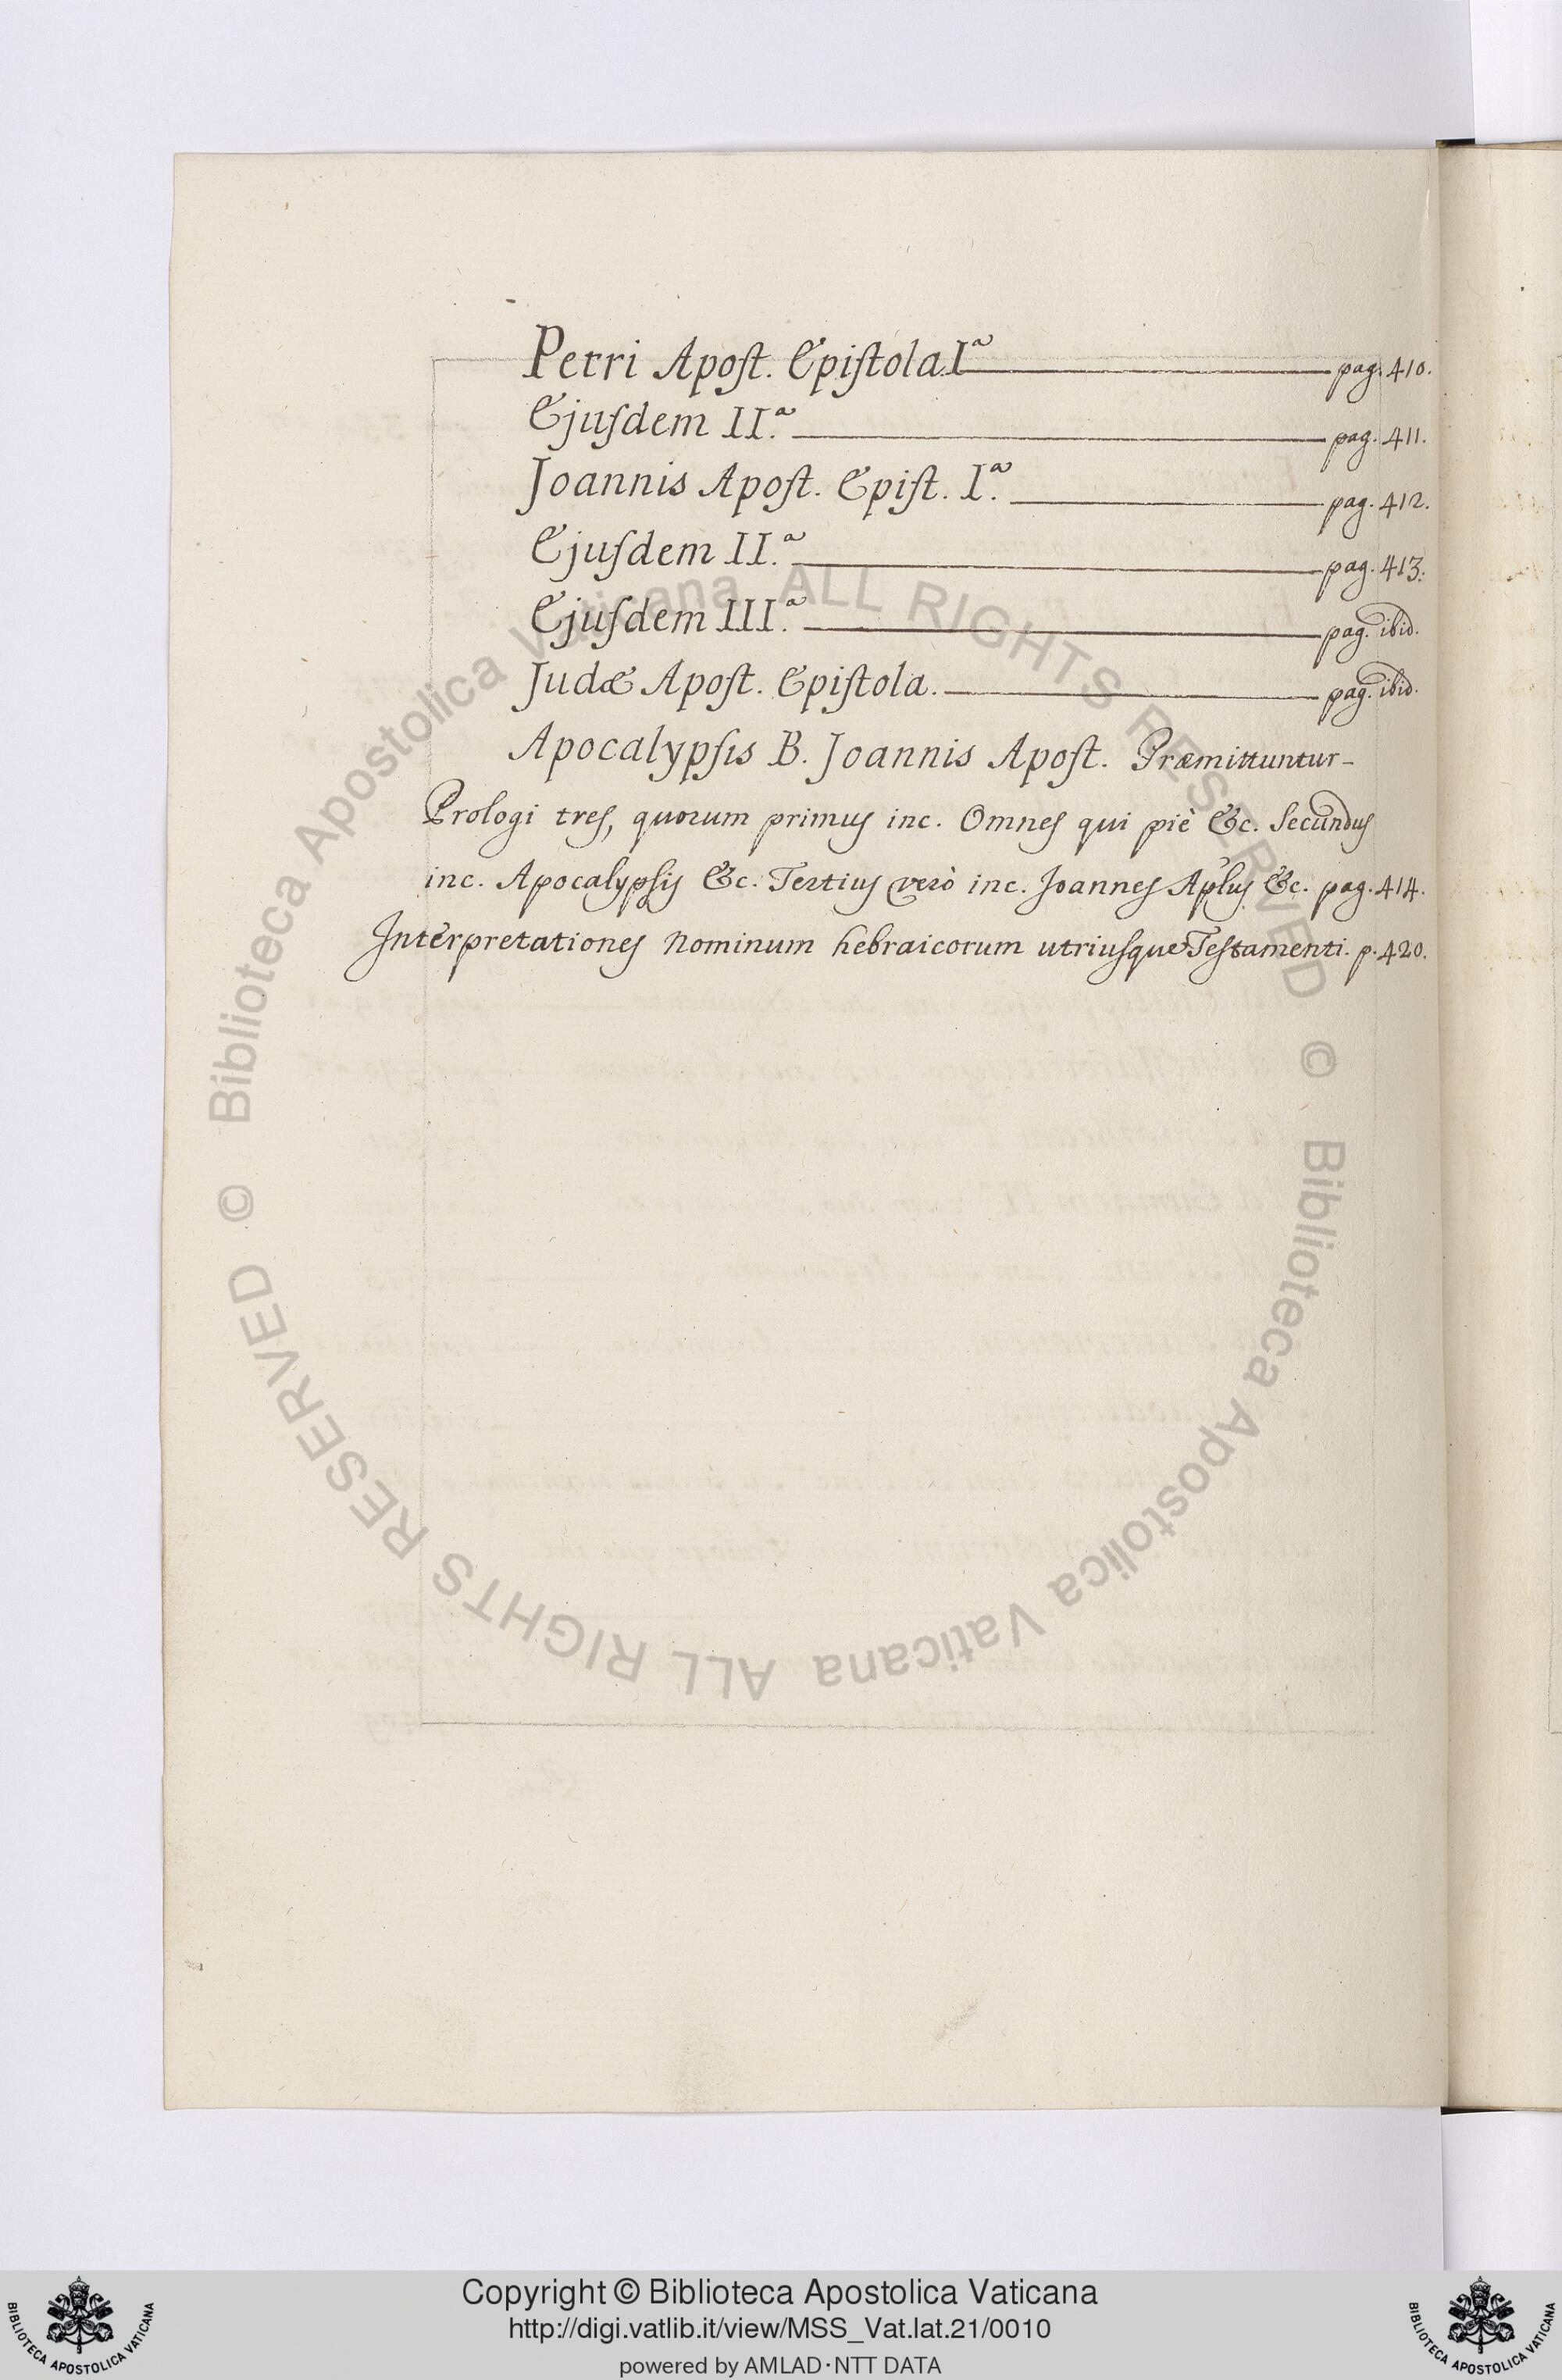 Petri Apost. Epistola Iª pag. 410.
Ejusdem II.ª pag. 411.
Joannis Apost. Epist. I.ª pag. 412.
Ejusdem II.ª pag. 413.
Ejusdem III.ª pag. ibid.
Judæ Apost. Epistola. pag. ibid.
Apocalypsis B. Joannis Apost. Præmittuntur-
Prologi tres, quorum primus inc. Omnes qui piè &c. Secundus
inc. Apocalypsis &c. Tertius verò inc. Joannes Aplus &c. pag. 414.
Interpretationes Nominum hebraicorum utriusque Testamenti. p. 420.
© Biblioteca Apostolica Vaticana ALL RIGHTS RESERVED
© Biblioteca Apostolica Vaticana ALL RIGHTS RESERVED
Copyright © Biblioteca Apostolica Vaticana
http://digi.vatlib.it/view/MSS_Vat.lat.21/0010
powered by AMLAD·NTT DATA
BIBLIOTECA APOSTOLICA VATICANA
BIBLIOTECA APOSTOLICA VATICANA